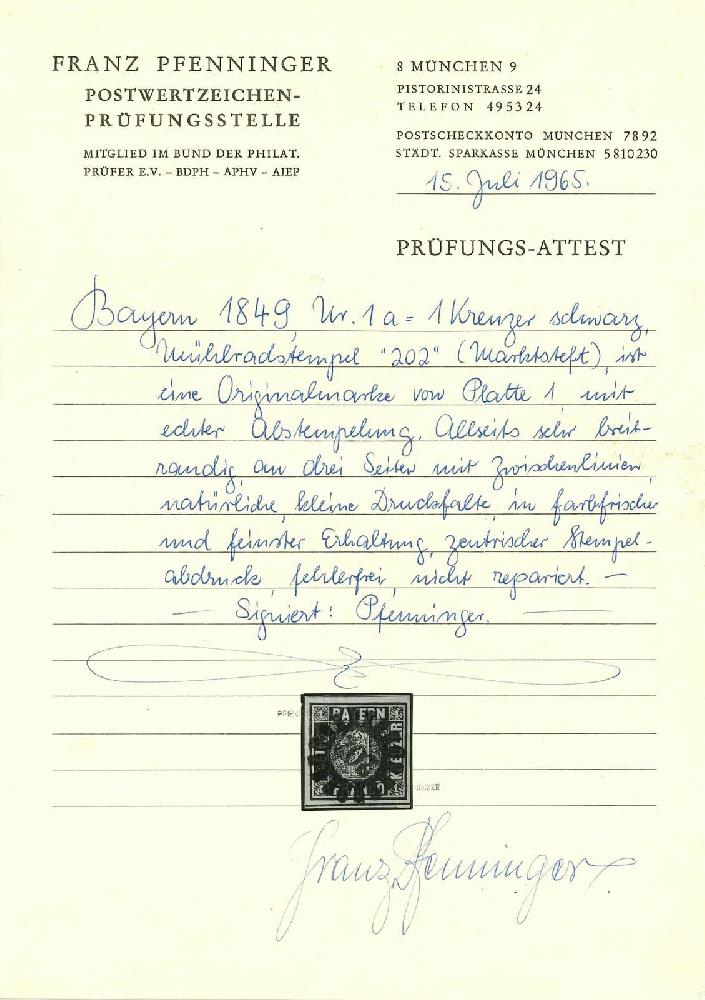 FRANZ PFENNINGER
POSTWERTZEICHEN-
PRÜFUNGSSTELLE
MITGLIED IM BUND DER PHILAT.
PRÜFER E.V. – BDPH – APHV – AIEP
8 MÜNCHEN 9
PISTORINISTRASSE 24
TELEFON 495324
POSTSCHECKKONTO MÜNCHEN 7892
STÄDT. SPARKASSE MÜNCHEN 5810230
15. Juli 1965.
PRÜFUNGS-ATTEST
Bayern 1849, Nr. 1a = 1 Kreuzer schwarz,
Mühlradstempel "202" (Marktsteft), ist
eine Originalmarke von Platte 1 mit
echter Abstempelung. Allseits sehr breit-
randig, an drei Seiten mit Zwischenlinien,
natürliche, kleine Druckfalte, in farbfrischer
und feinster Erhaltung, zentrischer Stempel-
abdruck, fehlerfrei, nicht repariert. —
— Signiert: Pfenninger. —
BAYERN
KREUZER
Franz Pfenninger